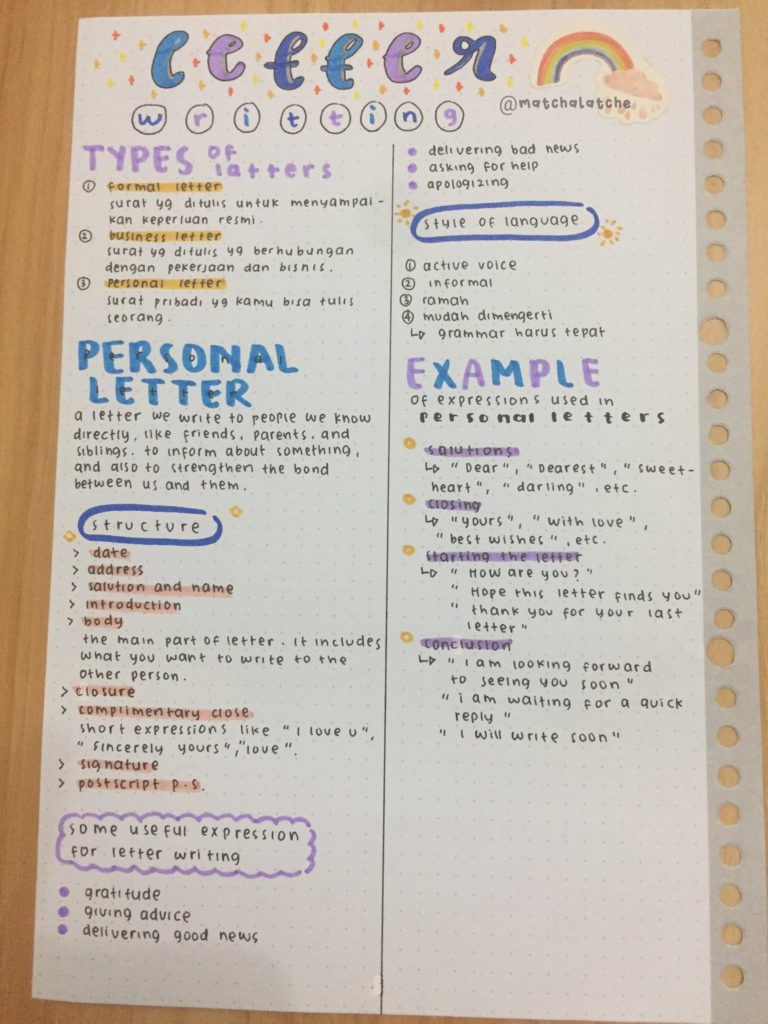 letter
writting
@matchalatche
TYPES of
latters
① formal letter
surat yg ditulis untuk menyampai-
kan keperluan resmi.
② business letter
surat yg ditulis yg berhubungan
dengan pekerjaan dan bisnis.
③ personal letter
surat pribadi yg kamu bisa tulis
seorang.
PERSONAL
LETTER
a letter we write to people we know
directly, like friends, parents, and
siblings. to inform about something,
and also to strengthen the bond
between us and them.
structure
> date
> address
> salution and name
> introduction
> body
the main part of letter. it includes
what you want to write to the
other person.
> closure
> complimentary close
short expressions like "I love u",
"sincerely yours", "love".
> signature
> postscript p.s.
some useful expression
for letter writing
gratitude
giving advice
delivering good news
delivering bad news
asking for help
apologizing
style of language
① active voice
② informal
③ ramah
④ mudah dimengerti
↳ grammar harus tepat
EXAMPLE
of expressions used in
personal letters
salutions
↳ "Dear", "Dearest", "sweet-
heart", "darling", etc.
closing
↳ "yours", "with love",
"best wishes", etc.
starting the letter
↳ "How are you?"
"Hope this letter finds you"
"thank you for your last
letter"
conclusion
↳ "I am looking forward
to seeing you soon"
"i am waiting for a quick
reply"
"I will write soon"